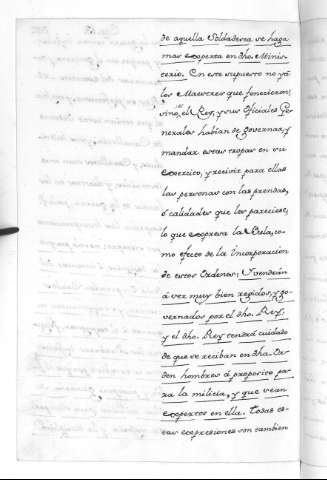 de aquella Soldadesca se haga
mas experta en dho. Minis-
terio. En este supuesto no yá
los Maestres que fenecieron;
sino, el Rey, y sus Oficiales Ge-
nerales habian de governar, y
mandar estas tropas en su
exercicio, y recivir para ellas
las personas con las prendas,
ó calidades que les pareciese,
lo que expresa la Bula, co-
mo efecto de la Incorporacion
de estos Ordenes; Y vendrán
á ser muy bien regidos, y go-
vernados por el dho. Rey;
y el dho. Rey tendrá cuidado
de que se reciban en dha. Or-
den hombres á proposito pa-
ra la milicia, y que sean
expertos en ella. Todas es-
tas expresiones son tambien